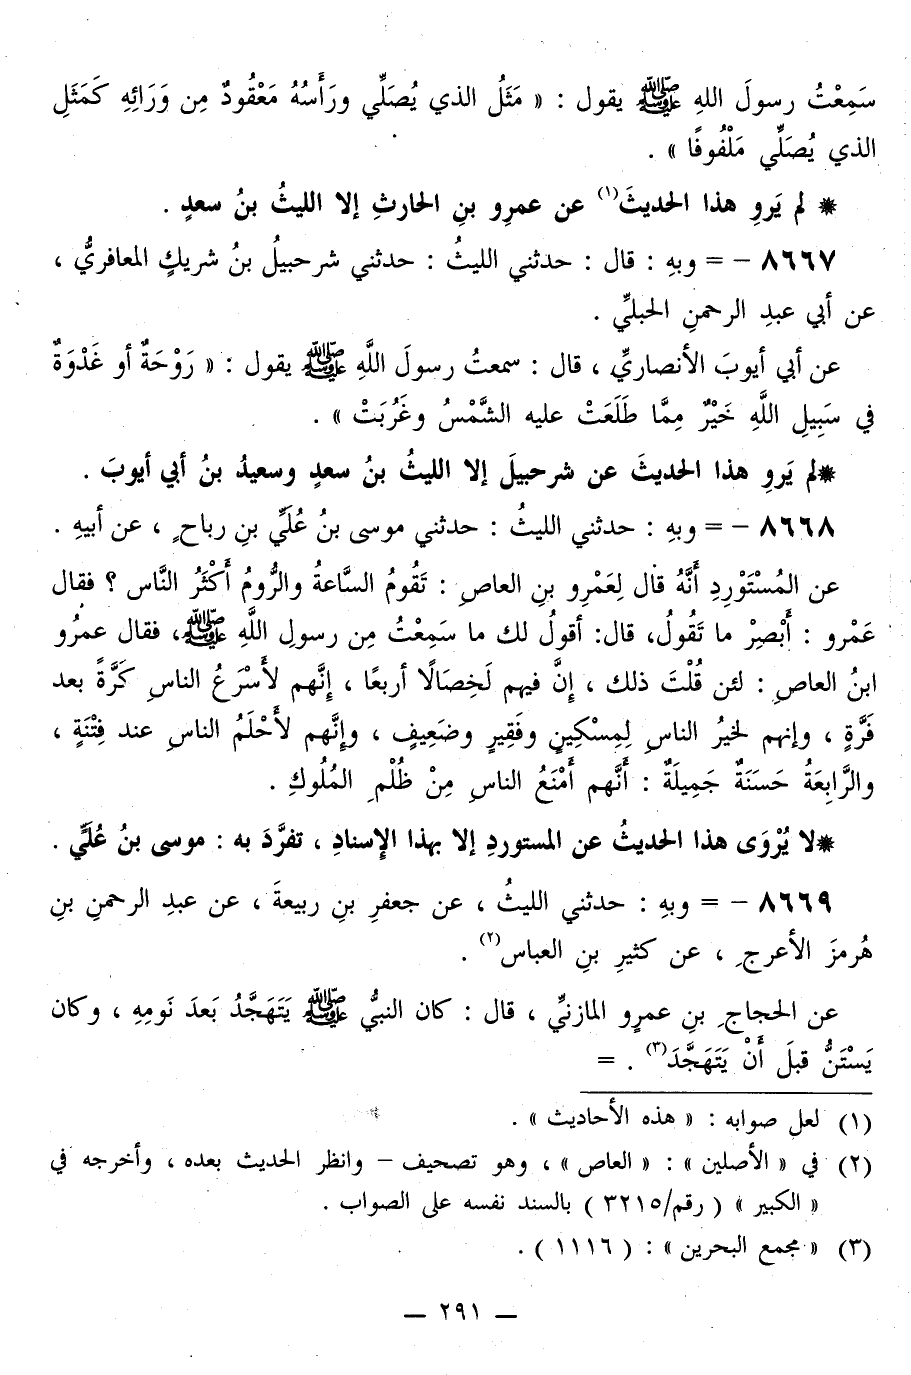 سَمِعْتُ رسولَ اللهِ ﷺ يقول : « مَثَلُ الذي يُصَلِّي ورَأْسُهُ مَعْقُودٌ مِن وَرَائِهِ كَمَثَلِ
الذي يُصَلِّي مَلْفُوفًا » .
* لم يَروِ هذا الحديثَ(١) عن عمرِو بنِ الحارثِ إلا الليثُ بنُ سعدٍ .
٨٦٦٧ - = وبهِ : قال : حدثني الليثُ : حدثني شرحبيلُ بنُ شريكٍ المعافريُّ ،
عن أبي عبدِ الرحمنِ الحبليِّ .
عن أبي أيوبَ الأنصاريِّ ، قال : سمعتُ رسولَ اللَّهِ ﷺ يقول : « رَوْحَةٌ أو غَدْوَةٌ
في سَبِيلِ اللَّهِ خَيْرٌ مِمَّا طَلَعَتْ عليه الشَّمْسُ وغَرُبَتْ » .
*لم يَروِ هذا الحديثَ عن شرحبيلَ إلا الليثُ بنُ سعدٍ وسعيدُ بنُ أبي أيوبَ .
٨٦٦٨ - = وبهِ : حدثني الليثُ : حدثني موسى بنُ عُلَيِّ بنِ رباحٍ ، عن أبيهِ .
عن المُسْتَوْرِدِ أنَّهُ قال لِعَمْرِو بنِ العاصِ : تَقُومُ السَّاعةُ والرُّومُ أكْثَرُ النَّاس ؟ فقال
عَمْرو : أَبْصِرْ ما تَقُولُ، قال: أقولُ لك ما سَمِعْتُ مِن رسولِ اللَّهِ ﷺ، فقال عمرُو
ابنُ العاصِ : لئن قُلْتَ ذلك ، إنَّ فيهم لَخِصَالًا أربعًا ، إنَّهم لأَسْرَعُ الناسِ كَرَّةً بعد
فَرَّةٍ ، وإنهم لخيرُ الناسِ لِمِسْكِينٍ وفَقِيرٍ وضَعِيفٍ ، وإنَّهم لأَحْلَمُ الناسِ عند فِتْنَةٍ ،
والرَّابِعَةُ حَسَنَةٌ جَمِيلَةٌ : أنَّهم أمْنَعُ الناسِ مِنْ ظُلْمِ المُلُوكِ .
*لا يُرْوَى هذا الحديثُ عن المستوردِ إلا بهذا الإسنادِ ، تفرَّدَ به : موسى بنُ عُلَيٍّ .
٨٦٦٩ - = وبهِ : حدثني الليثُ ، عن جعفرِ بنِ ربيعةَ ، عن عبدِ الرحمنِ بنِ
هُرمزَ الأعرجِ ، عن كثيرِ بنِ العباس(٢) .
عن الحجاجِ بنِ عمرٍو المازنيِّ ، قال : كان النبيُّ ﷺ يَتَهَجَّدُ بَعدَ نَومِهِ ، وكان
يَسْتَنُّ قبلَ أَنْ يَتَهَجَّدَ(٣) . =
(١) لعل صوابه : « هذه الأحاديث » .
(٢) في « الأصلين » : « العاص » ، وهو تصحيف - وانظر الحديث بعده ، وأخرجه في
« الكبير » ( رقم/٣٢١٥ ) بالسند نفسه على الصواب .
(٣) « مجمع البحرين » : ( ١١١٦ ) .
— ٢٩١ —